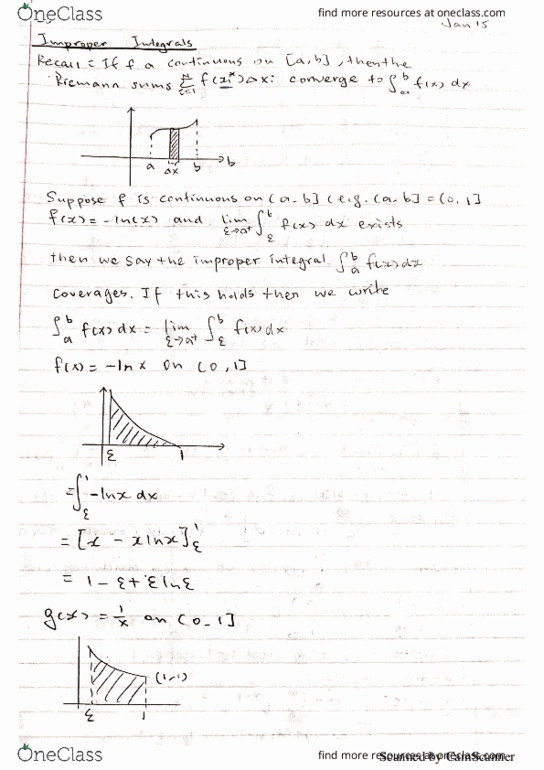 OneClass find more resources at oneclass.com
Jan 15
Improper Integrals
Recall = If f a continuous on [a, b], then the
Riemann sums Σ f(x*) Δxi converge to ∫ₐᵇ f(x) dx
a Δx b b
Suppose f is continuous on (a, b] (e.g. (a, b] = (0, 1]
f(x) = -ln(x) and lim ε→a⁺ ∫ε^b f(x) dx exists
then we say the improper integral ∫ₐᵇ f(x) dx
coverages. If this holds then we write
∫ₐᵇ f(x) dx = lim ε→a⁺ ∫ε^b f(x) dx
f(x) = -ln x on (0, 1]
ε 1
= ∫ε^1 -ln x dx
= [x - x ln x]ε^1
= 1 - ε + ε ln ε
g(x) = 1/x on (0, 1]
(1, 1)
ε 1
OneClass find more resources at oneclass.com
Scanned by CamScanner